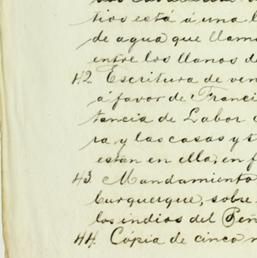 tios está á una l
de agua que llam
entre los llanos d
42. Escritura de ven
á favor de Franci
tancia de Labor
ra, y las casas y t
estan en ella, en f
43. Mandamiento
burquerque, sobre
los indios del Peñ
44. Cópia de cinco